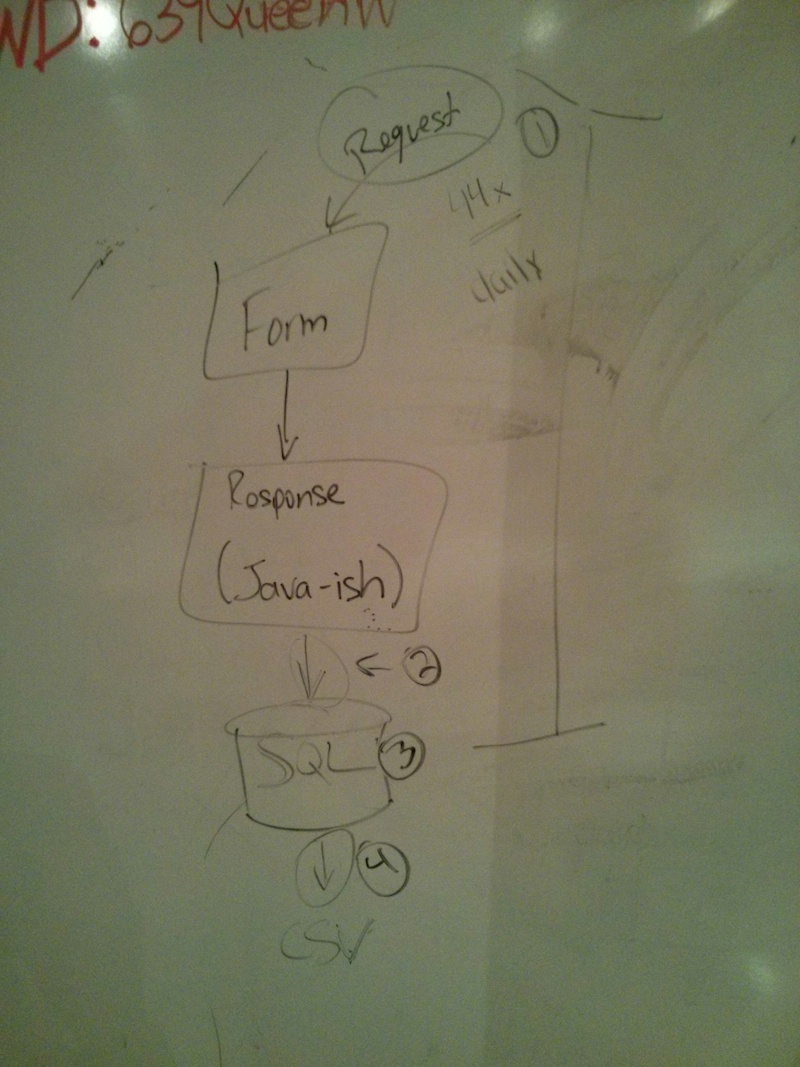 WD: 639QueenW
Request
1
44x
daily
Form
Rosponse
(Java-ish)
← 2
SQL 3
4
CSV